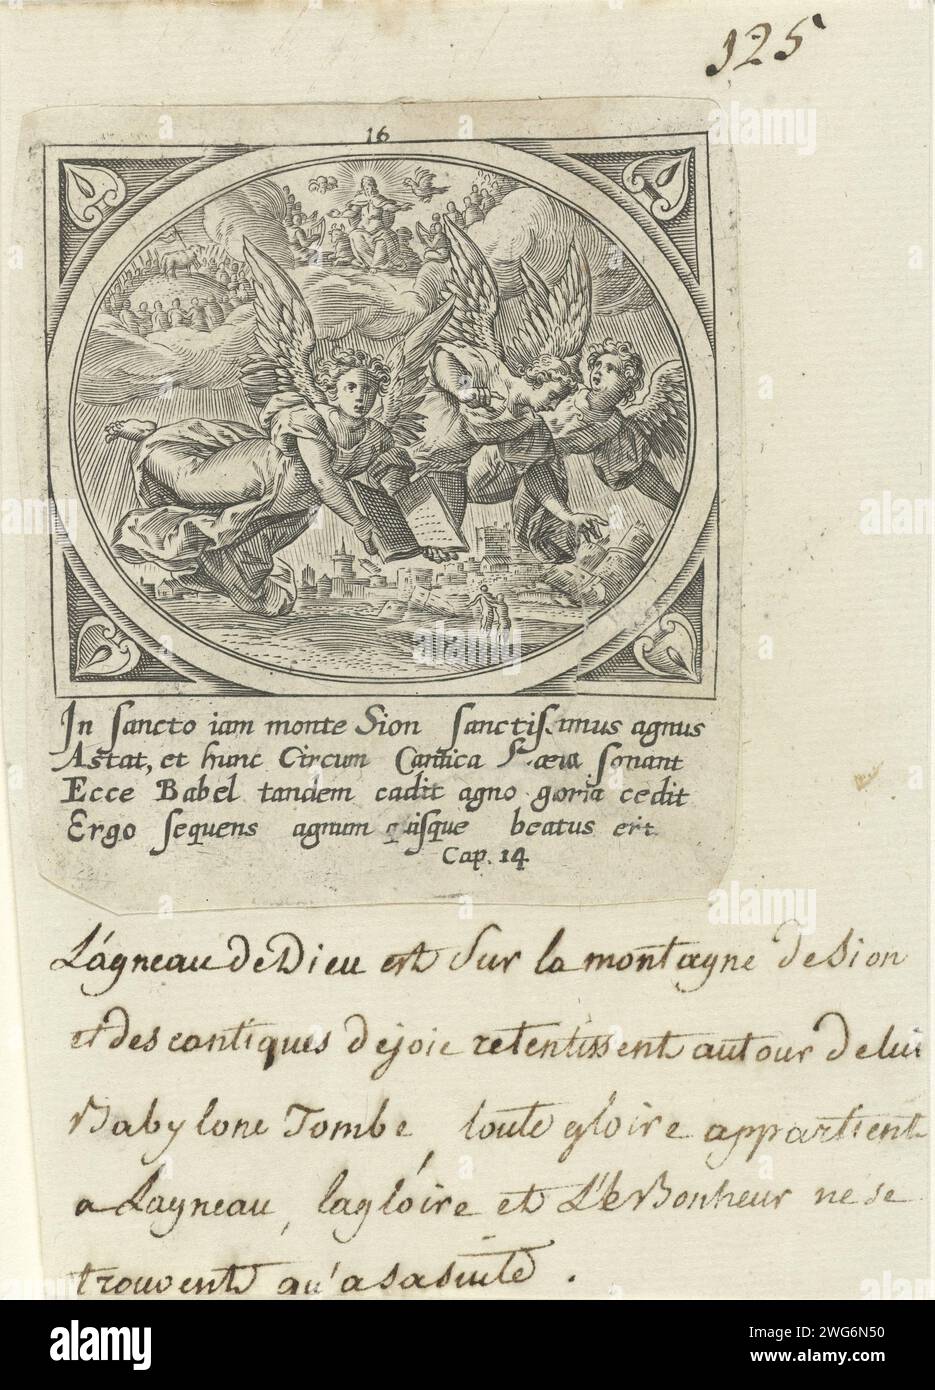 125
16
In sancto iam monte Sion sanctissimus agnus
Astat, et hunc Circum Cantica sonant
Ecce Babel tandem cadit agno gloria cedit
Ergo sequens agnum quisque beatus erit
Cap. 14
L'agneau de Dieu est Sur la montagne de Sion
et des cantiques de joie retentissent autour de lui
Babylone Tombe, toute gloire appartient
a Lagneau, la gloire et Le Bonheur ne se
trouvent qu'a sa suite.
alamy
Image ID: 2WG6N50
www.alamy.com